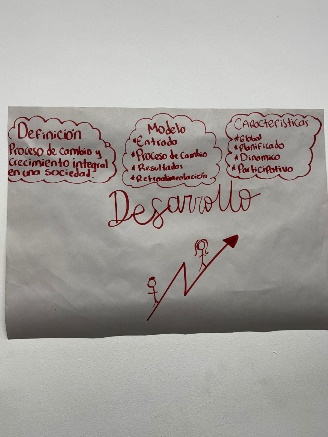 Definición
Proceso de cambio y
crecimiento integral
en una sociedad
Modelo
*Entrada
*Proceso de Cambio
*Resultados
*Retroalimentación
Características
*Global
*Planificado
*Dinamico
*Participativo
Desarrollo